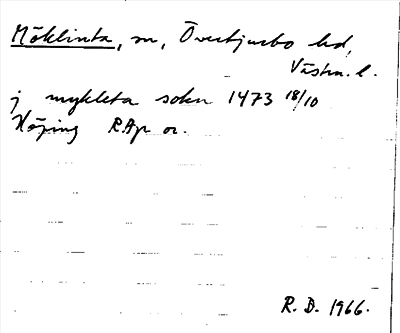 Möklinta, sn, Övertjurbo hd,
Västm. l.
j mykleta sokn 1473 18/10
Köping RAp or.
R. D. 1966.